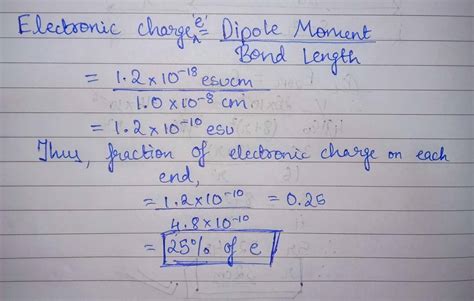 Electronic charge 'e' = Dipole Moment
Bond Length
= 1.2×10⁻¹⁸ esucm
1.0×10⁻⁸ cm
= 1.2×10⁻¹⁰ esu
Thus, fraction of electronic charge on each
end,
= 1.2×10⁻¹⁰ = 0.25
4.8×10⁻¹⁰
= 25% of e